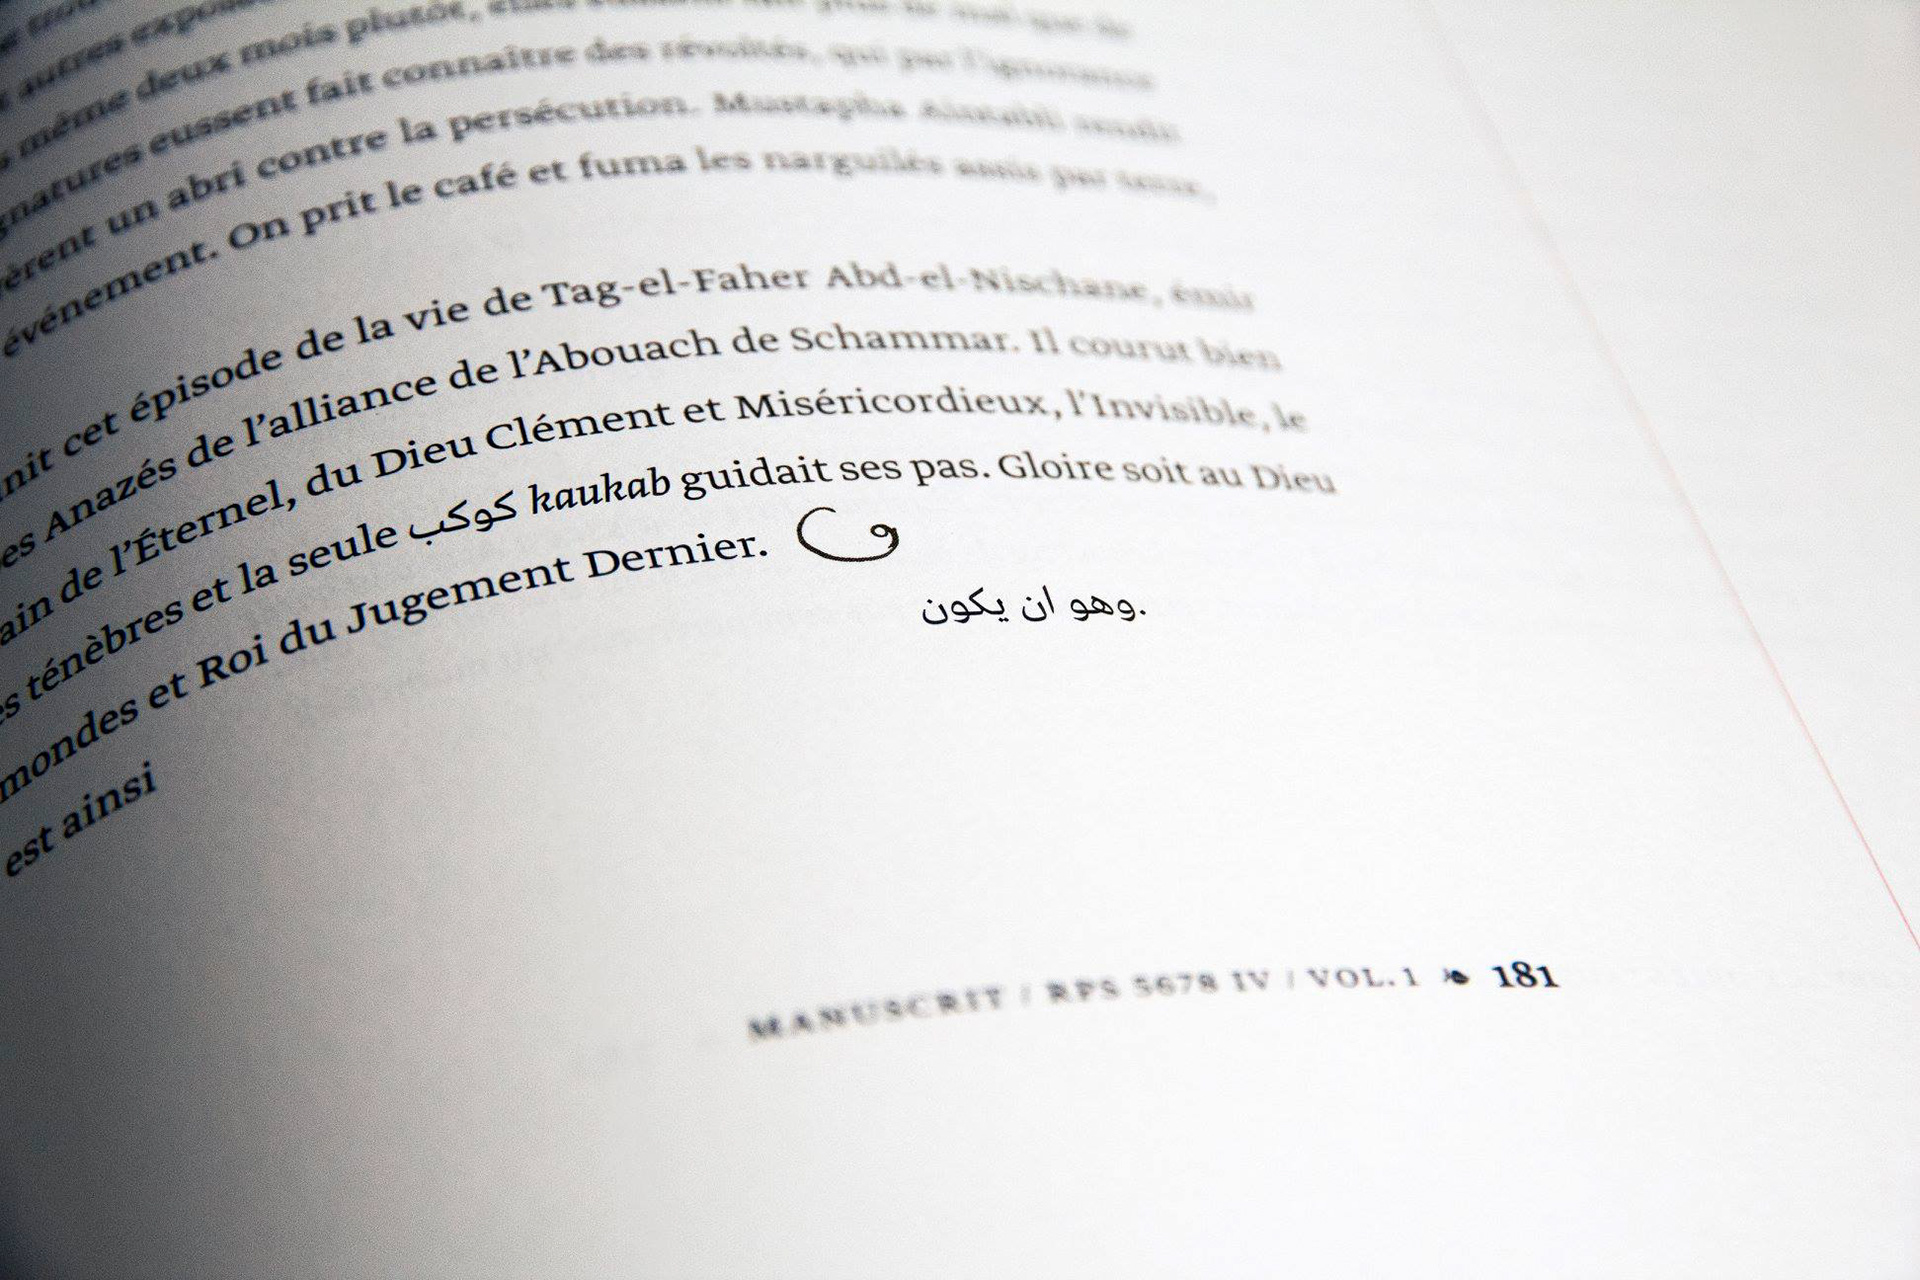 autres
même deux mois plutôt,
eussent fait connaître des révoltés, qui par l'ignorance
un abri contre la persécution. Mustapha
événement. On prit le café et fuma les narguilés assis par terre,
cet épisode de la vie de Tag-el-Faher Abd-el-Nischane, émir
Anazés de l'alliance de l'Abouach de Schammar. Il courut bien
de l'Éternel, du Dieu Clément et Miséricordieux, l'Invisible, le
ténèbres et la seule كوكب kaukab guidait ses pas. Gloire soit au Dieu
mondes et Roi du Jugement Dernier.
وهو ان يكون.
est ainsi
MANUSCRIT / RPS 5678 IV / VOL. 1 ❧ 181